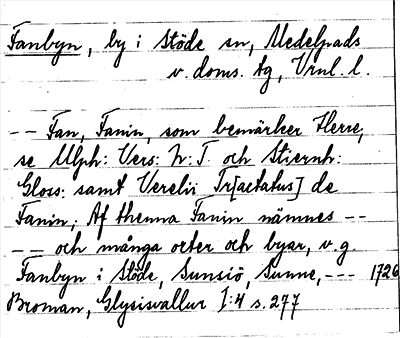 Fanbyn, by i Stöde sn, Medelpads
v. doms. tg, Vrnl. l.
-- Fan, Fanin, som bemärker Herre,
se Ulph: Vers: N: T. och Stiernh:
Gloss: samt Verelii Tr[actatus] de
Fanin; Af thenna Fanin nämnes --
-- och många orter och byar, v. g.
Fanbyn i Stöde, Sunsiö, Sunne, --- 1726
Broman, Glysisvallur I:4 s. 277